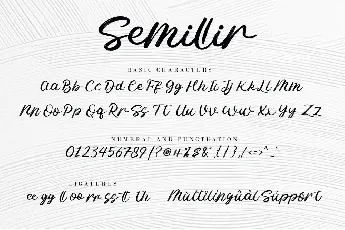 Semillir
BASIC CHARACTERS
Aa Bb Cc Dd Ee Ff Gg Hh Ii Jj Kk Ll Mm
Nn Oo Pp Qq Rr Ss Tt Uu Vv Ww Xx Yy Zz
NUMERAL AND PUNCTUATION
0123456789!?@#%$&
LIGATURES
ee gg ll oo rr ss tt th Multilingual Support